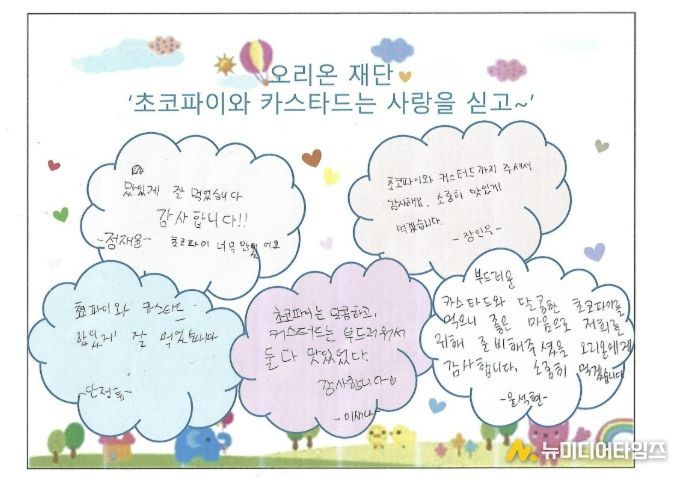 오리온 재단
'초코파이와 카스타드는 사랑을 싣고~'
맛있게 잘 먹었습니다
감사합니다!!
-정재율- 초코파이 너무 맛있어요
초코파이와 커스터드까지 주셔서
감사해요. 소중히 맛있게
먹겠습니다.
- 장인우 -
초코파이와 카스타드
맛있게 잘 먹었습니다
초코파이는 달콤하고,
커스터드는 부드러워서
둘 다 맛있었다.
감사합니다
부드러운
카스타드와 달콤한 초코파이를
먹으니 좋은 마음으로 저희를
위해 준비해주셨을 오리온에게
감사합니다. 소중히 먹겠습니다
-윤석현-
N. 뉴미디어타임즈